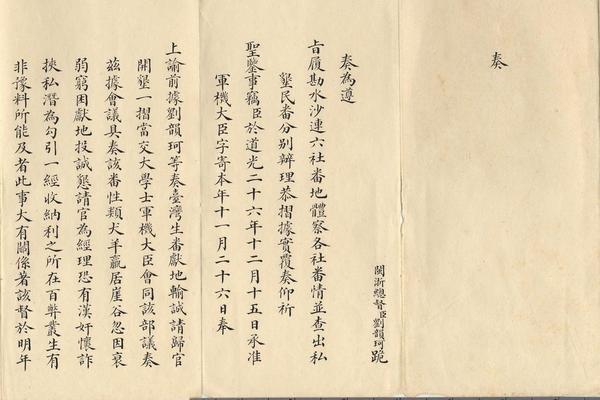 奏
閩浙總督臣劉韻珂跪
奏為遵
旨履勘水沙連六社番地體察各社番情並查出私
墾民番分別辦理恭摺據實覆奏仰祈
聖鑒事竊臣於道光二十六年十二月十五日承准
軍機大臣字寄本年十一月二十六日奉
上諭前據劉韻珂等奏臺灣生番獻地輸誠請歸官
開墾一摺當交大學士軍機大臣會同該部議奏
茲據會議具奏該番性類犬羊羸居崖谷忽因衰
弱窮困獻地投誠懇請官為經理恐有漢奸懷詐
挾私潛為勾引一經收納利之所在百弊叢生有
非豫料所能及者此事大有關係著該督於明年